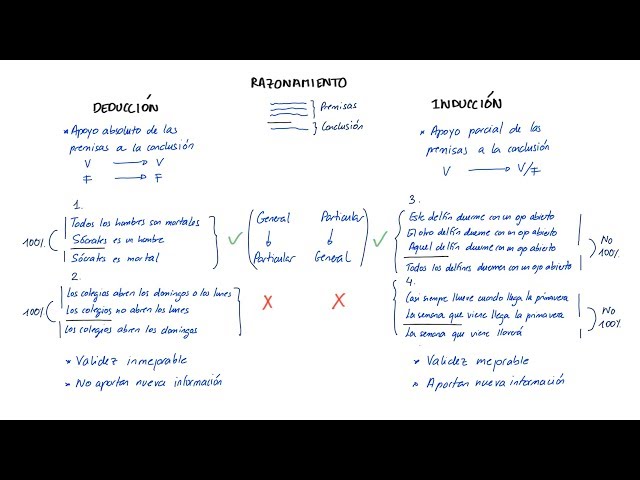 RAZONAMIENTO
Premisas
Conclusión
DEDUCCIÓN
* Apoyo absoluto de las
premisas a la conclusión
V → V
F → F
1.
Todos los hombres son mortales
Sócrates es un hombre
Sócrates es mortal
100%
2.
Los colegios abren los domingos o los lunes
Los colegios no abren los lunes
Los colegios abren los domingos
100%
* Validez inmejorable
* No aportan nueva información
General
↓
Particular
Particular
↓
General
✓
✓
X
X
INDUCCIÓN
* Apoyo parcial de las
premisas a la conclusión
V → V/F
3.
Este delfín duerme con un ojo abierto
El otro delfín duerme con un ojo abierto
Aquel delfín duerme con un ojo abierto
Todos los delfines duermen con un ojo abierto
No
100%
4.
Casi siempre llueve cuando llega la primavera
La semana que viene llega la primavera
La semana que viene lloverá
No
100%
* Validez mejorable
* Aportan nueva información